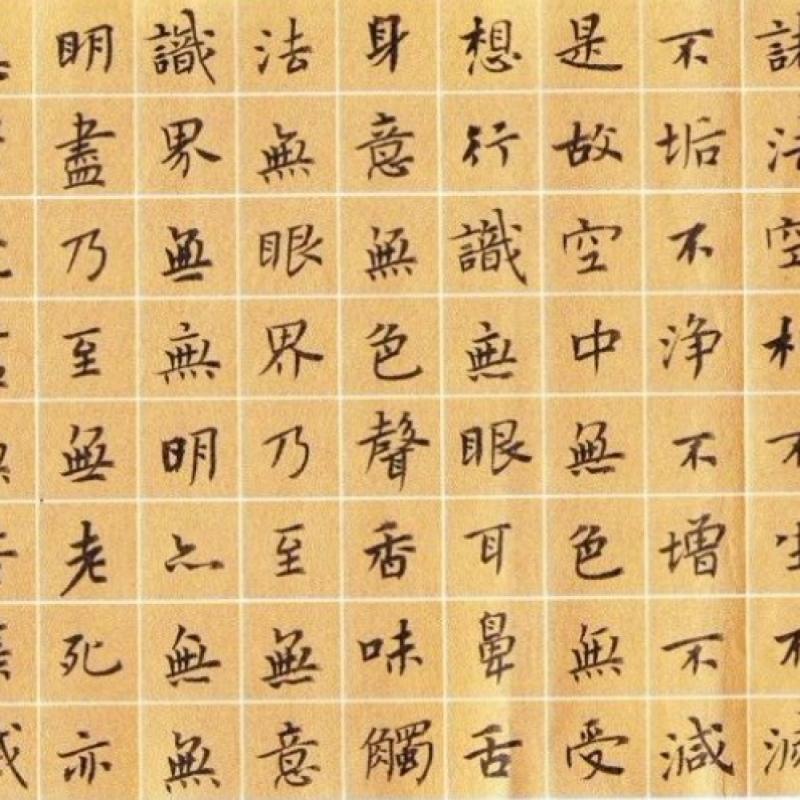 諸法空相不生不滅
不垢不浄不增不減
是故空中無色無受
想行識無眼耳鼻舌
身意無色聲香味觸
法無眼界乃至無意
識界無無明亦無無
明盡乃至無老死亦